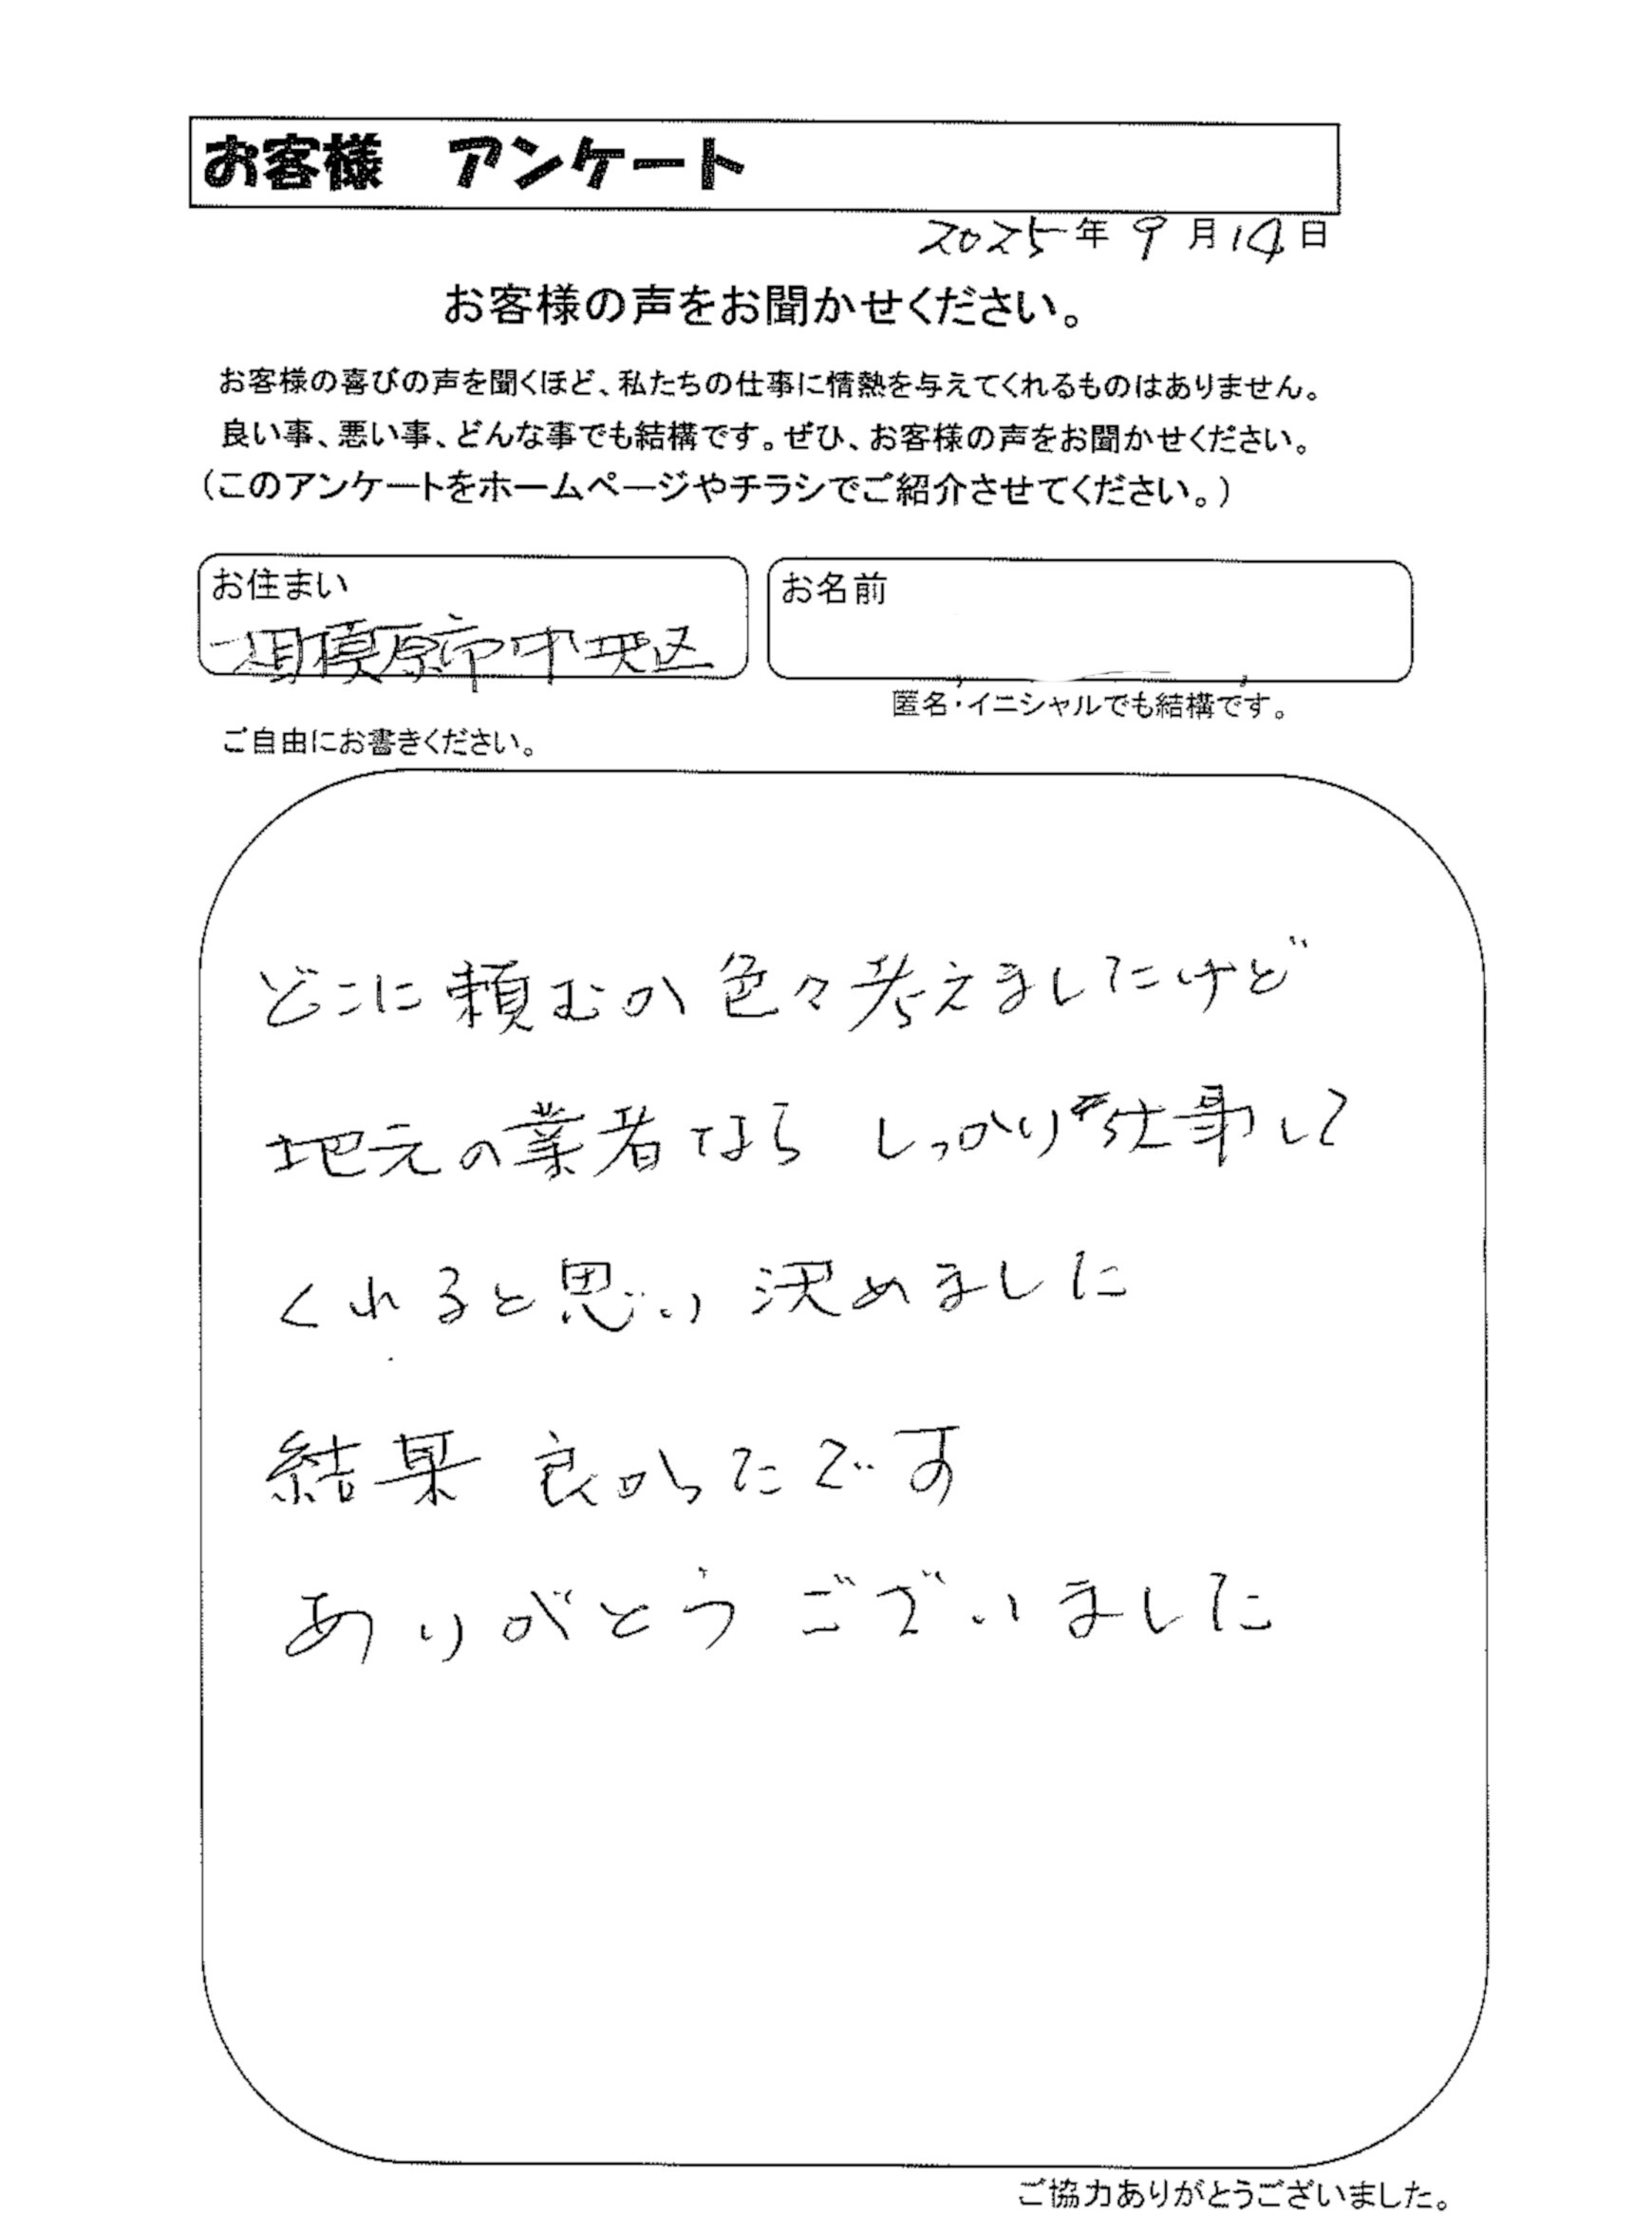 お客様 アンケート
2025年 9月14日
お客様の声をお聞かせください。
お客様の喜びの声を聞くほど、私たちの仕事に情熱を与えてくれるものはありません。
良い事、悪い事、どんな事でも結構です。ぜひ、お客様の声をお聞かせください。
（このアンケートをホームページやチラシでご紹介させてください。）
お住まい
相模原市中央区
お名前
匿名・イニシャルでも結構です。
ご自由にお書きください。
どこに頼むか色々考えましたけど
地元の業者なら しっかり仕事して
くれると思い 決めました
結果 良かったです
ありがとう ございました
ご協力ありがとうございました。